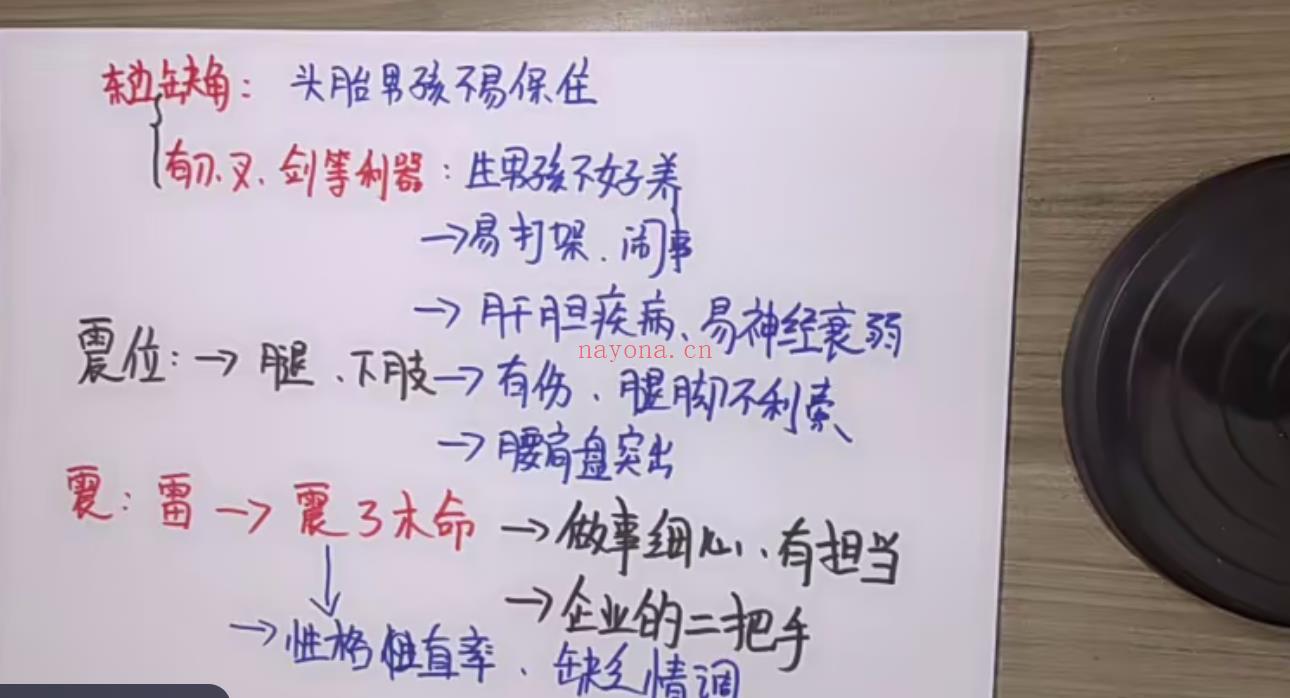 东边缺角：头胎男孩不易保住
有刀、叉、剑等利器：生男孩不好养
→易打架、闹事
→肝胆疾病、易神经衰弱
震位：→腿、下肢→有伤、腿脚不利索
→腰肩盘突出
nayona.cn
震：雷→震3木命→做事细心、有担当
→企业的二把手
→性格 直率、缺乏情调